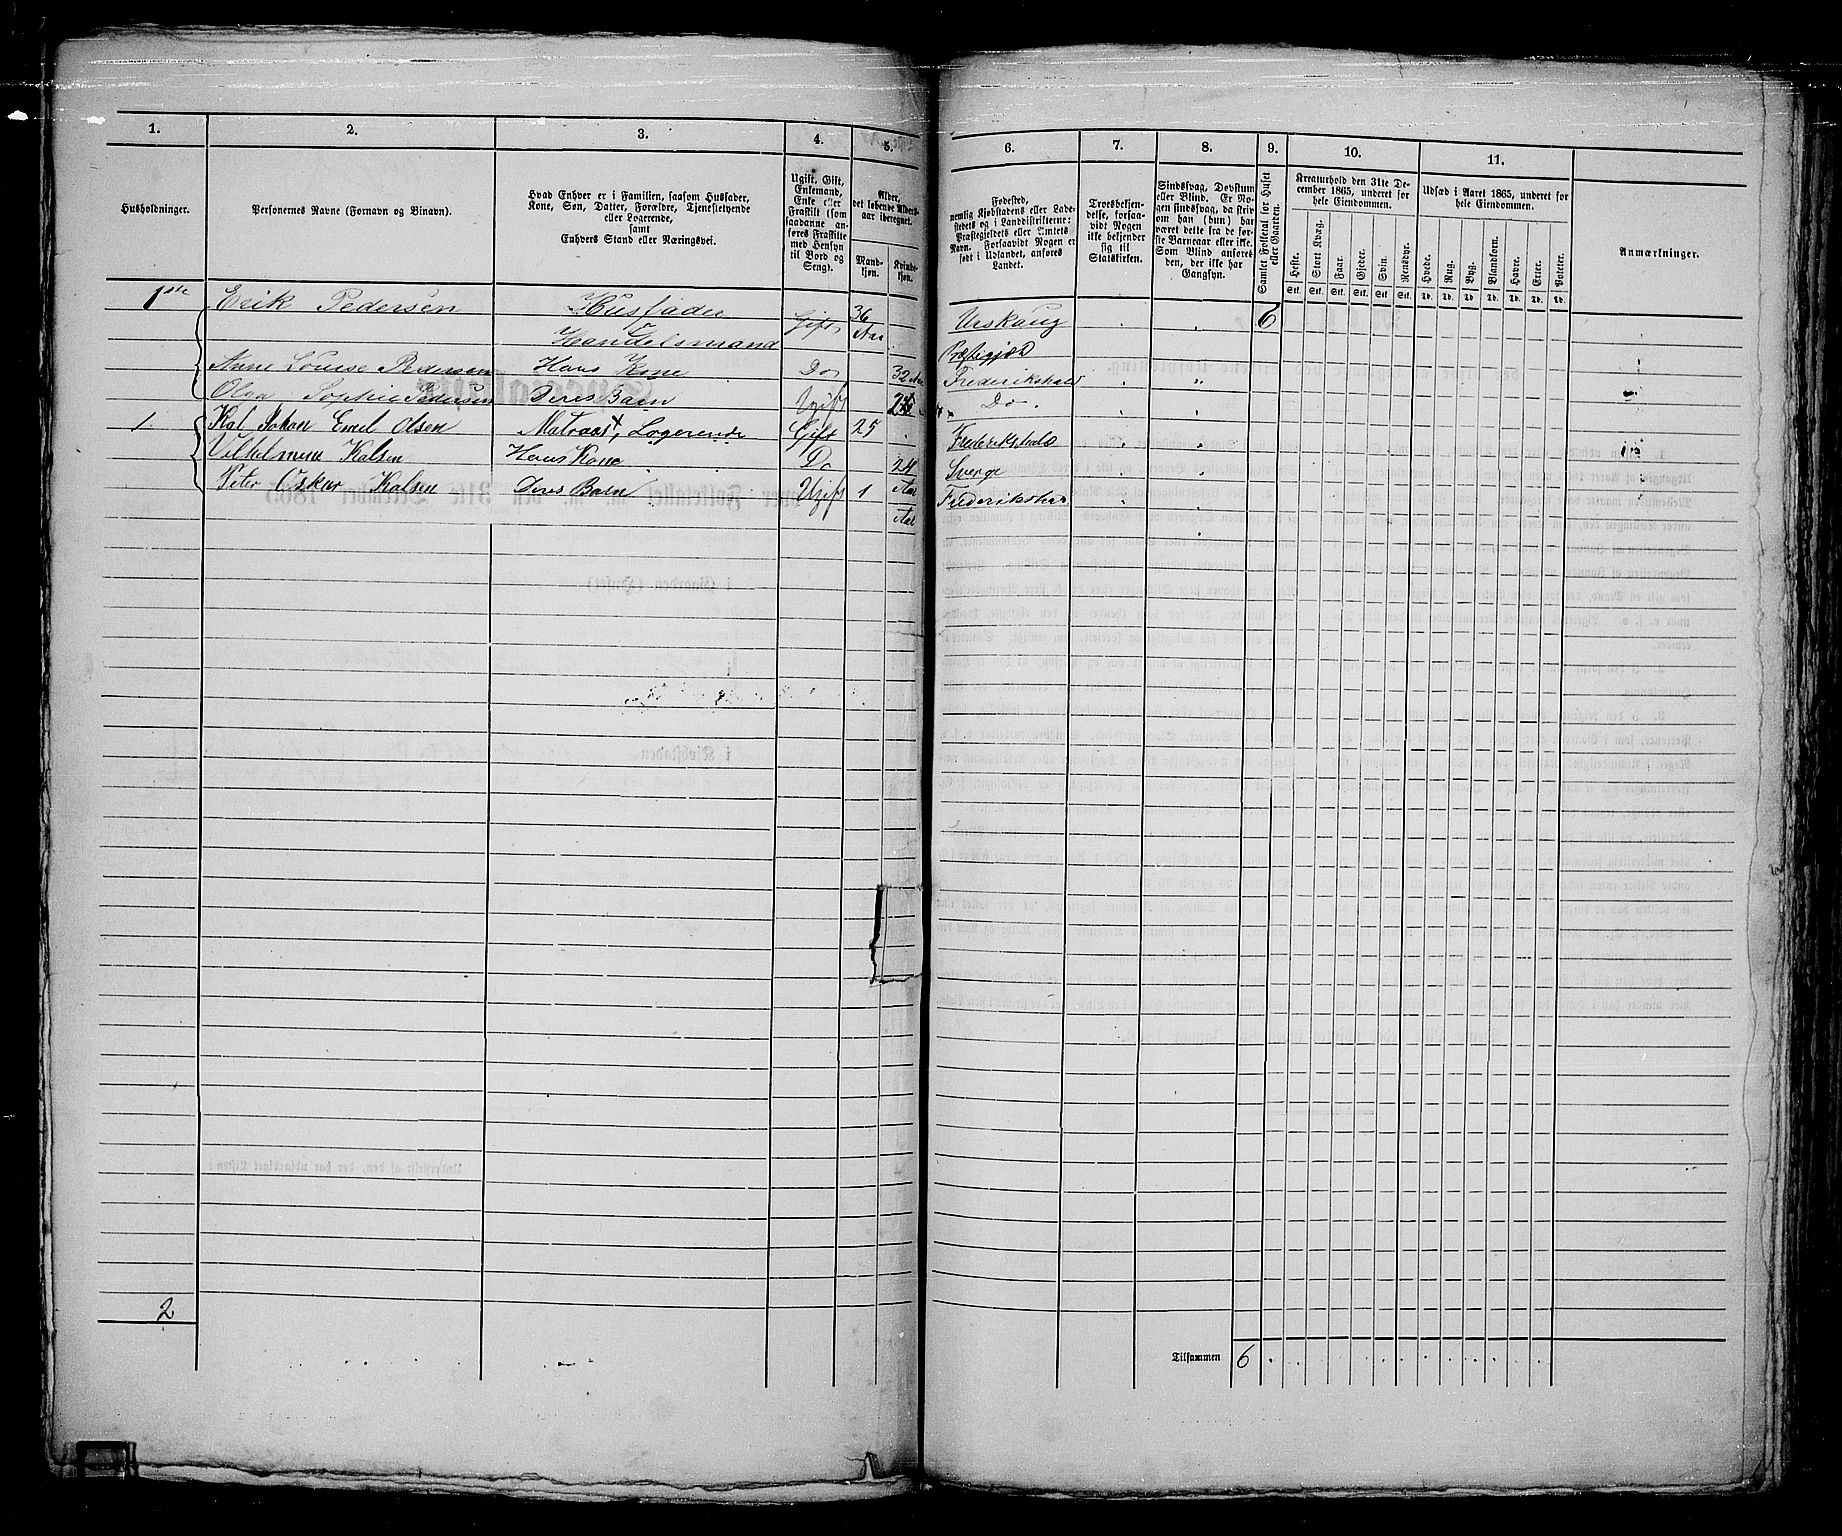 1. 2. 3. 4. 5. 6. 7. 8. 9. 10. 11.
Husholdninger.
Personernes Navne (Fornavn og Binavn).
Hvad Enhver er i Familien, saasom Husfader,
Kone, Søn, Datter, Forældre, Tjenestetyende
eller Logerende,
samt
Enhvers Stand eller Næringsvei.
Ugift, Gift,
Enkemand,
Enke eller
Fraskilt (som
saadanne an-
føres Fraskilte
med Hensyn
til Bord og
Seng).
Alder,
det løbende Alders-
aar iberegnet.
Mand-
kjøn.
Kvinde-
kjøn.
Fødested,
nemlig Kjøbstadens eller Lade-
stedets og i Landdistrikterne:
Præstegjeldets eller Amtets
Navn. Forsaavidt Nogen er
født i Udlandet, anføres
Landet.
Troesbekjen-
delse, forsaa-
vidt Nogen
ikke bekjender
sig til
Statskirken.
Sindssvag, Døvstum
eller Blind. Er No-
gen sindssvag, da skriv
om han (hun) har
været dette fra de før-
ste Barneaar eller ikke.
Som Blind anføres
den, der ikke har
Gangsyn.
Samlet Folketal for Huset
eller Gaarden.
Kreaturhold den 31te De-
cember 1865, underet for
hele Eiendommen.
Heste. Stort Kvæg. Faar. Gjeder. Svin. Rensdyr.
Stk. Stk. Stk. Stk. Stk. Stk.
Udsæd i Aaret 1865, underet for
hele Eiendommen.
Hvede. Rug. Byg. Blandkorn. Havre. Erter. Poteter.
Td. Td. Td. Td. Td. Td. Td.
Anmærkninger.
1ste Erik Pedersen Husfader Gift 36 Aar Urskaug 6
Handelsmand Præstegjæld
Anne Louise Pedersen Hans Kone Do 32 Aar Frederikshald "
Olga Sophie Pedersen Deres Barn Ugift Do.
1. Kal Johan Emil Olsen Matroos, Logerende Gift 25 Frederikshald
Vilhelmine Kalsen Hans Kone Do 24 Aar Sverge
Peter Oskar Kalsen Deres Barn Ugift 1 Aar Frederikshal
2
Tilsammen 6